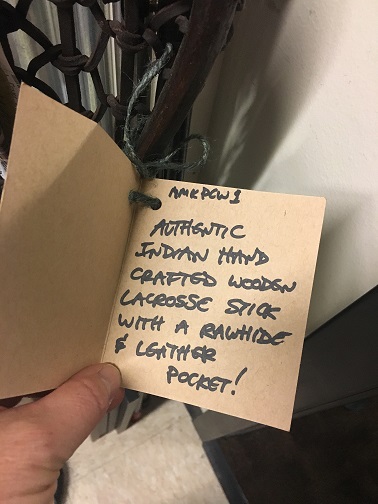 AMKPCW1
AUTHENTIC
INDIAN HAND
CRAFTED WOODEN
LACROSSE STICK
WITH A RAWHIDE
& LEATHER
POCKET!